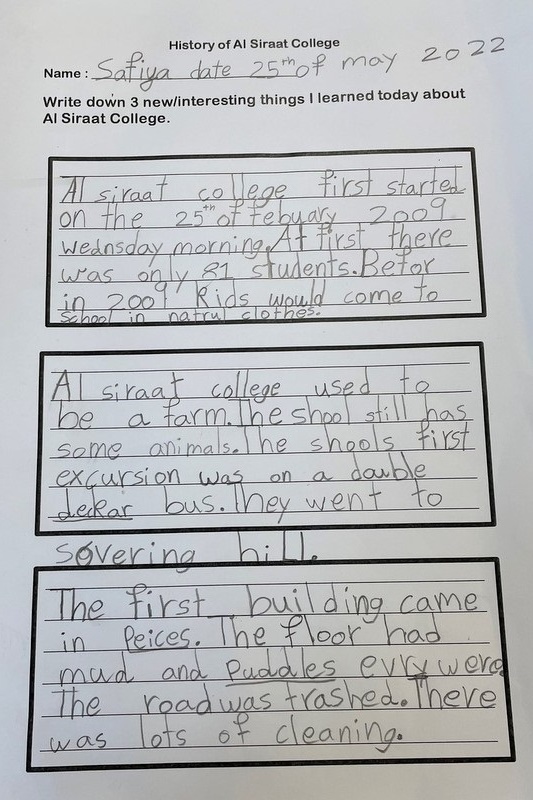 History of Al Siraat College
Name : Safiya date 25th of may 2022
Write down 3 new/interesting things I learned today about
Al Siraat College.
Al siraat college first started
on the 25th of febuary 2009
wednsday morning. At first there
was only 81 students. Befor
in 2009 kids would come to
school in natrul clothes.
Al siraat college used to
be a farm. The shool still has
some animals. The shools first
excursion was on a double
deckar bus. They went to
sovering hill.
The first building came
in Peices. The floor had
mud and puddles evry were
The road was trashed. There
was lots of cleaning.